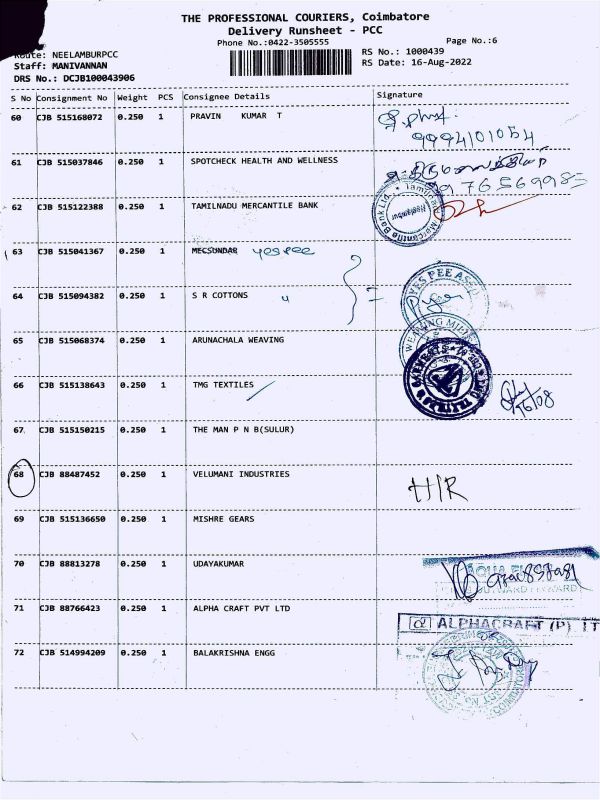 THE PROFESSIONAL COURIERS, Coimbatore
Delivery Runsheet - PCC
Phone No.:0422-3505555
Page No.:6
Route: NEELAMBURPCC
RS No.: 1000439
Staff: MANIVANNAN
RS Date: 16-Aug-2022
DRS No.: DCJB100043906
S No Consignment No Weight PCS Consignee Details Signature
60 CJB 515168072 0.250 1 PRAVIN KUMAR T
9994101054
61 CJB 515037846 0.250 1 SPOTCHECK HEALTH AND WELLNESS
62 CJB 515122388 0.250 1 TAMILNADU MERCANTILE BANK
Tamilnad Mercantile Bank Ltd.
Neelambur
63 CJB 515041367 0.250 1 MECSUNDAR yespee
64 CJB 515094382 0.250 1 S R COTTONS
YES PEE ASSO
65 CJB 515068374 0.250 1 ARUNACHALA WEAVING
WEAVING MILLS
66 CJB 515138643 0.250 1 TMG TEXTILES
16/08
67 CJB 515150215 0.250 1 THE MAN P N B(SULUR)
68 CJB 88487452 0.250 1 VELUMANI INDUSTRIES H/R
69 CJB 515136650 0.250 1 MISHRE GEARS
70 CJB 88813278 0.250 1 UDAYAKUMAR
AQUA
71 CJB 88766423 0.250 1 ALPHA CRAFT PVT LTD
ALPHACRAFT (P) LT
72 CJB 514994209 0.250 1 BALAKRISHNA ENGG